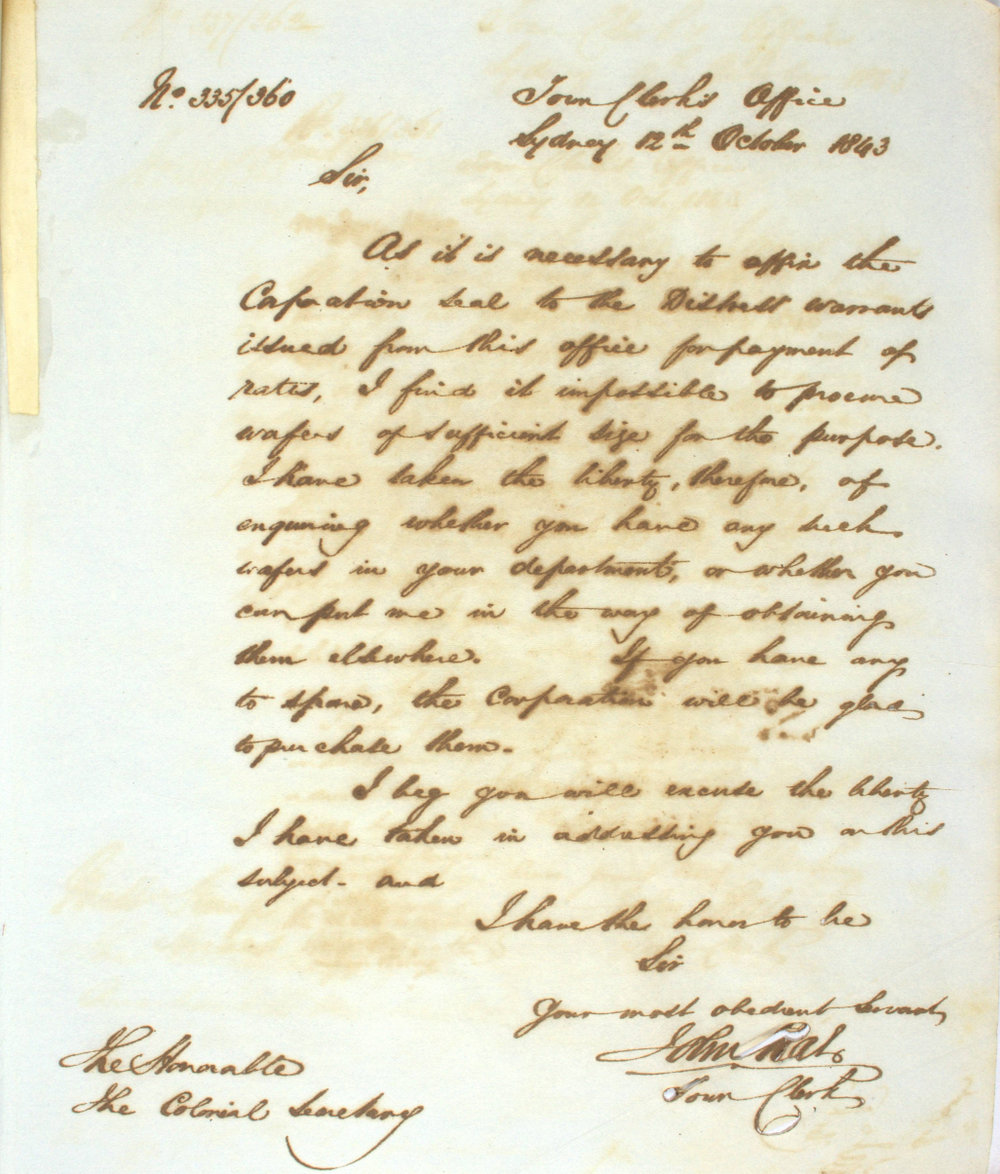 No. 335/360
Town Clerk's Office
Sydney 12th October 1843
Sir,
As it is necessary to affix the
Corporation seal to the Distress warrants
issued from this office for payment of
rates, I find it impossible to procure
wafers of sufficient size for the purpose.
I have taken the liberty, therefore, of
enquiring whether you have any such
wafers in your department, or whether you
can put me in the way of obtaining
them elsewhere. If you have any
to spare, the Corporation will be glad
to purchase them.
I beg you will excuse the liberty
I have taken in addressing you on this
subject - and
I have the honor to be
Sir
Your most obedient servant
John
Town Clerk
The Honorable
The Colonial Secretary